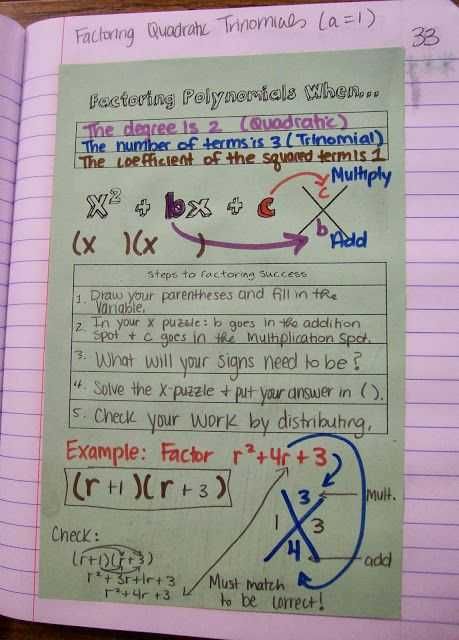 Factoring Quadratic Trinomials (a=1)
33
Factoring Polynomials When...
The degree is 2 (Quadratic)
The number of terms is 3 (Trinomial)
The coefficient of the squared term is 1
Multiply
x² + bx + c
c
b
Add
(x )(x )
Steps to Factoring Success
1. Draw your parentheses and fill in the
variable.
2. In your x puzzle: b goes in the addition
spot + c goes in the multiplication spot.
3. What will your signs need to be?
4. Solve the x-puzzle + put your answer in ( ).
5. Check your work by distributing.
Example: Factor r²+4r+3
(r+1)(r+3)
3
Mult.
1
3
4
add
Check:
(r+1)(r+3)
r²+3r+1r+3
r²+4r+3
Must match
to be correct!